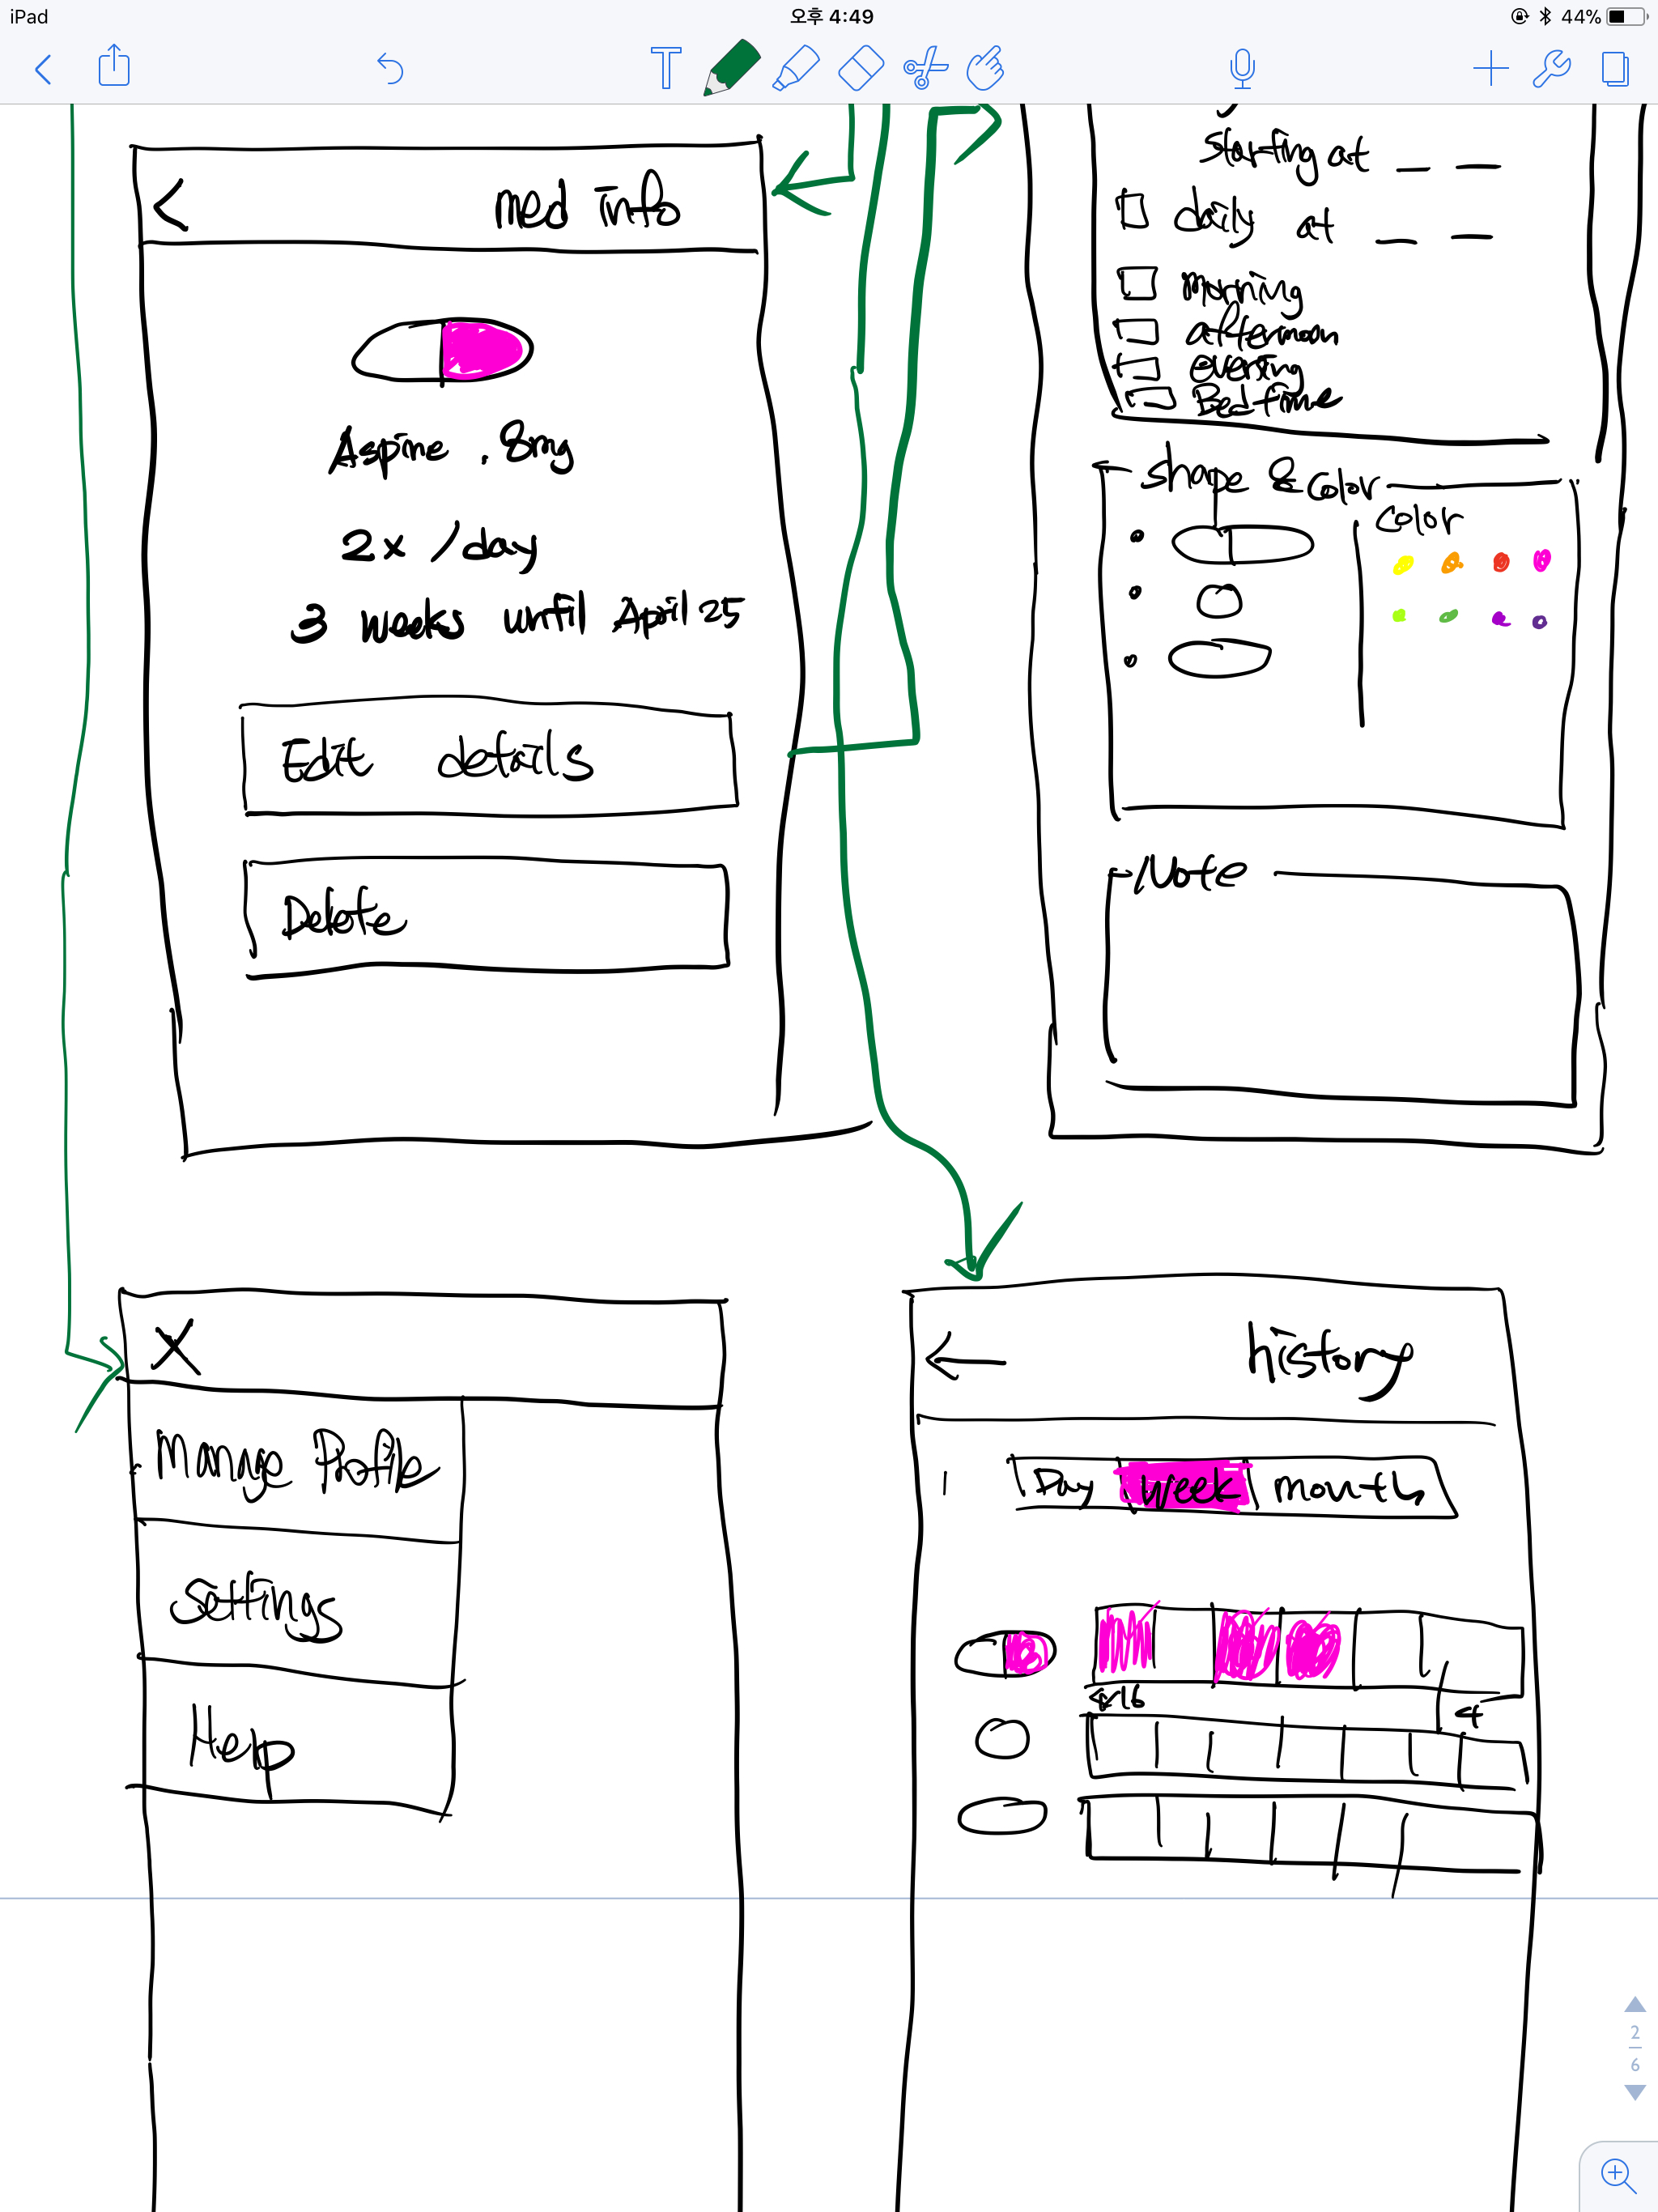 iPad
오후 4:49
44%
T
med info
Aspine . 8mg
2x /day
3 weeks until April 25
Edit details
Delete
starting at _ _
daily at _ _
morning
afternoon
evening
Bedtime
shape & color
color
Note
X
Manage Profile
Settings
Help
history
Day week month
4/16
4
2
6